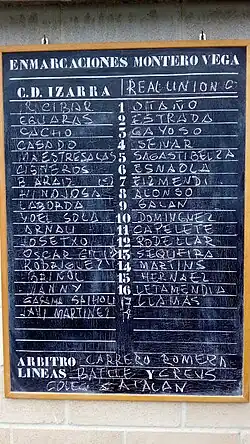 ENMARCACIONES MONTERO VEGA
C.D. IZARRA REAL UNION C.
1 OTAÑO
EGUARAS 2 ESTRADA
CACHO 3 GAYOSO
CASADO 4 SEIVAR
MAESTRESALAS 5 SAGASTIBELZA
CISNEROS 6 ESNAOLA
7 EIZMENDI
HINOJOSA 8 ALONSO
LABORDA 9 GALAN
YOEL SOLA 10 DOMINGUEZ
ARNAU 11 CAPELETE
12 RODELLAR
OSCAR 13 SEQUEIRA
RODRIGUEZ 14 MARTINS
15 HERNAEZ
16 LETAMENDIA
17 LLAMAS
JAVI MARTINEZ
ARBITRO CARRERO ROMERA
LINEAS BATLLE Y CREUS
COLEG CATALAN